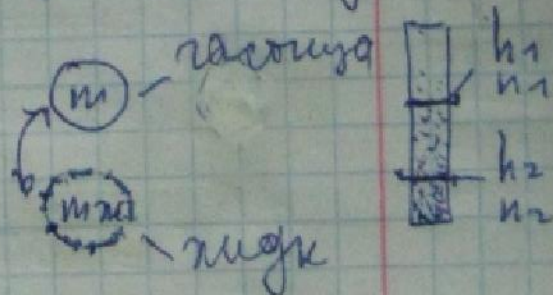 частица
m
mж
жидк
h1
n1
h2
n2